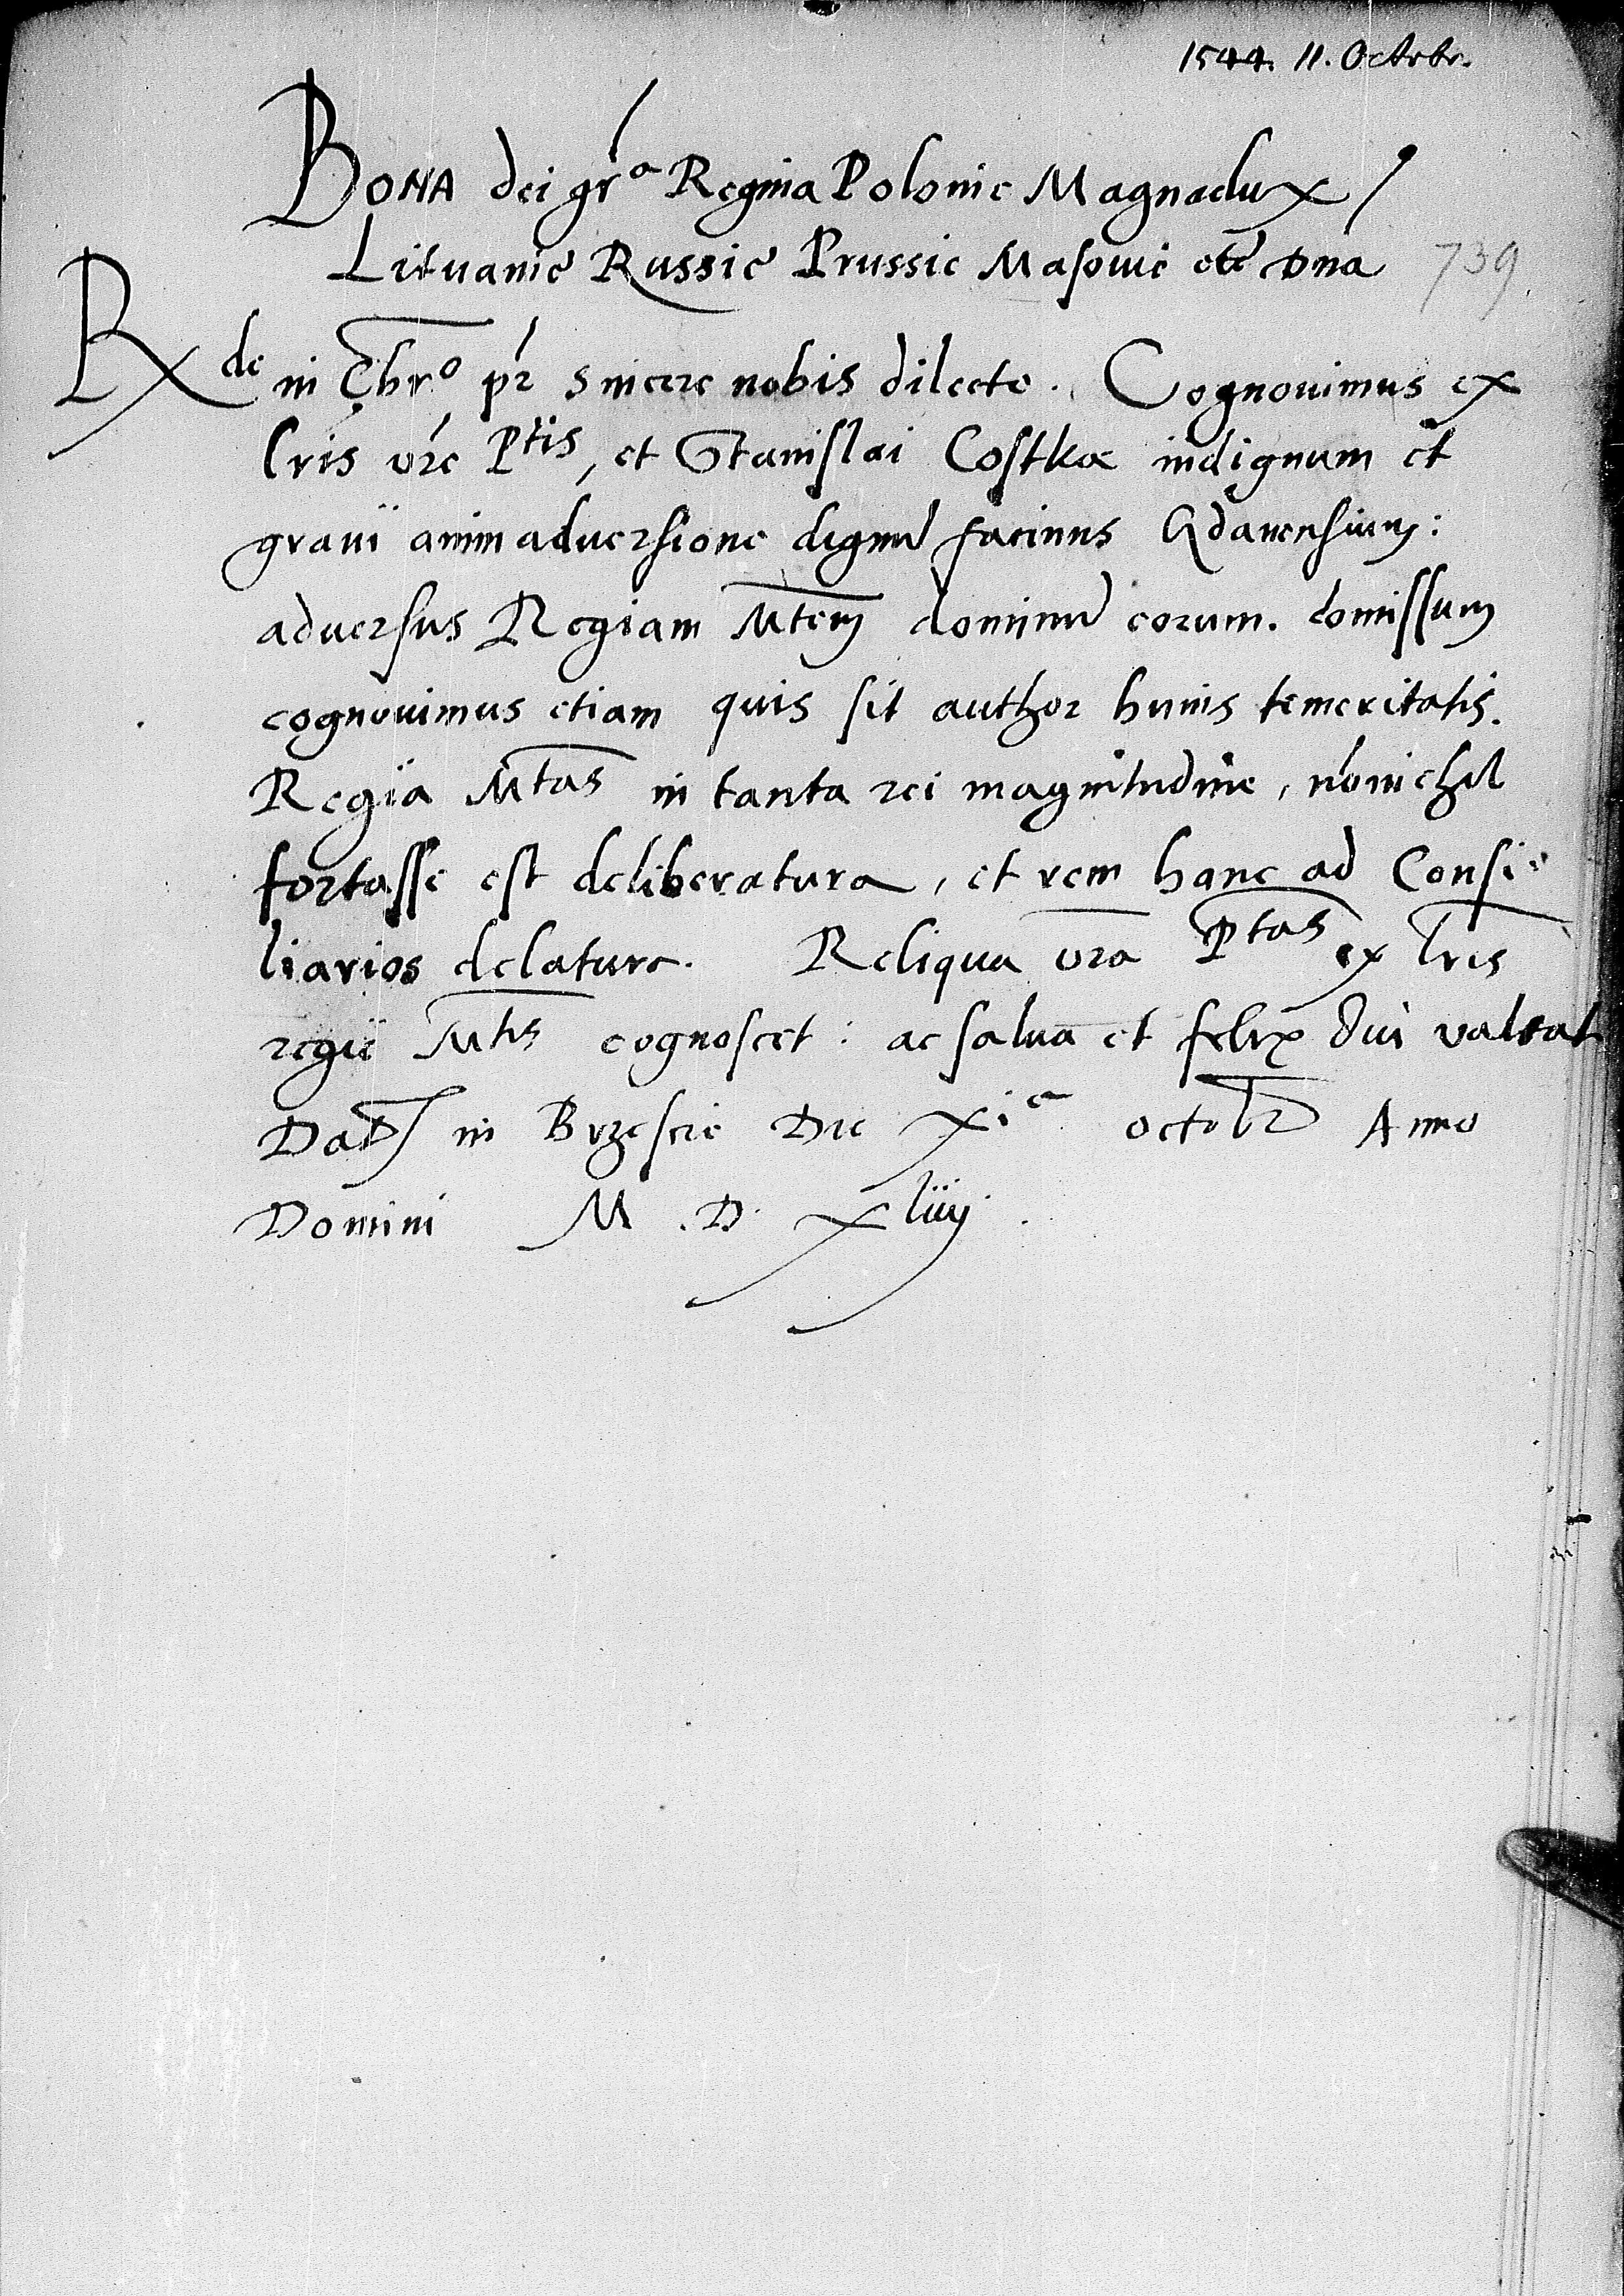 1544. 11. Octobr.
BONA dei gra Regina Polonie Magnadux
Lituanie Russie Prussie Masovie etc Dna
739
Rxde in Chro pr sincere nobis dilecte. Cognovimus ex
lris vre Ptis, et Stanislai Costkae indignum et
gravi animadversione dignu facinus Gdanensium:
adversus Regiam Mtem dominu eorum. comissum
cognovimus etiam quis sit author huius temeritatis.
Regia Mtas in tanta rei magnitudine, nonichil
fortasse est deliberatura, et rem hanc ad Consi-
liarios delatura. Reliqua vra Ptas ex lris
regie Mtis cognoscet: ac salva et felix diu valeat
Dat in Brzescie Die xia octobr Anno
Domini M.D. xliiij.